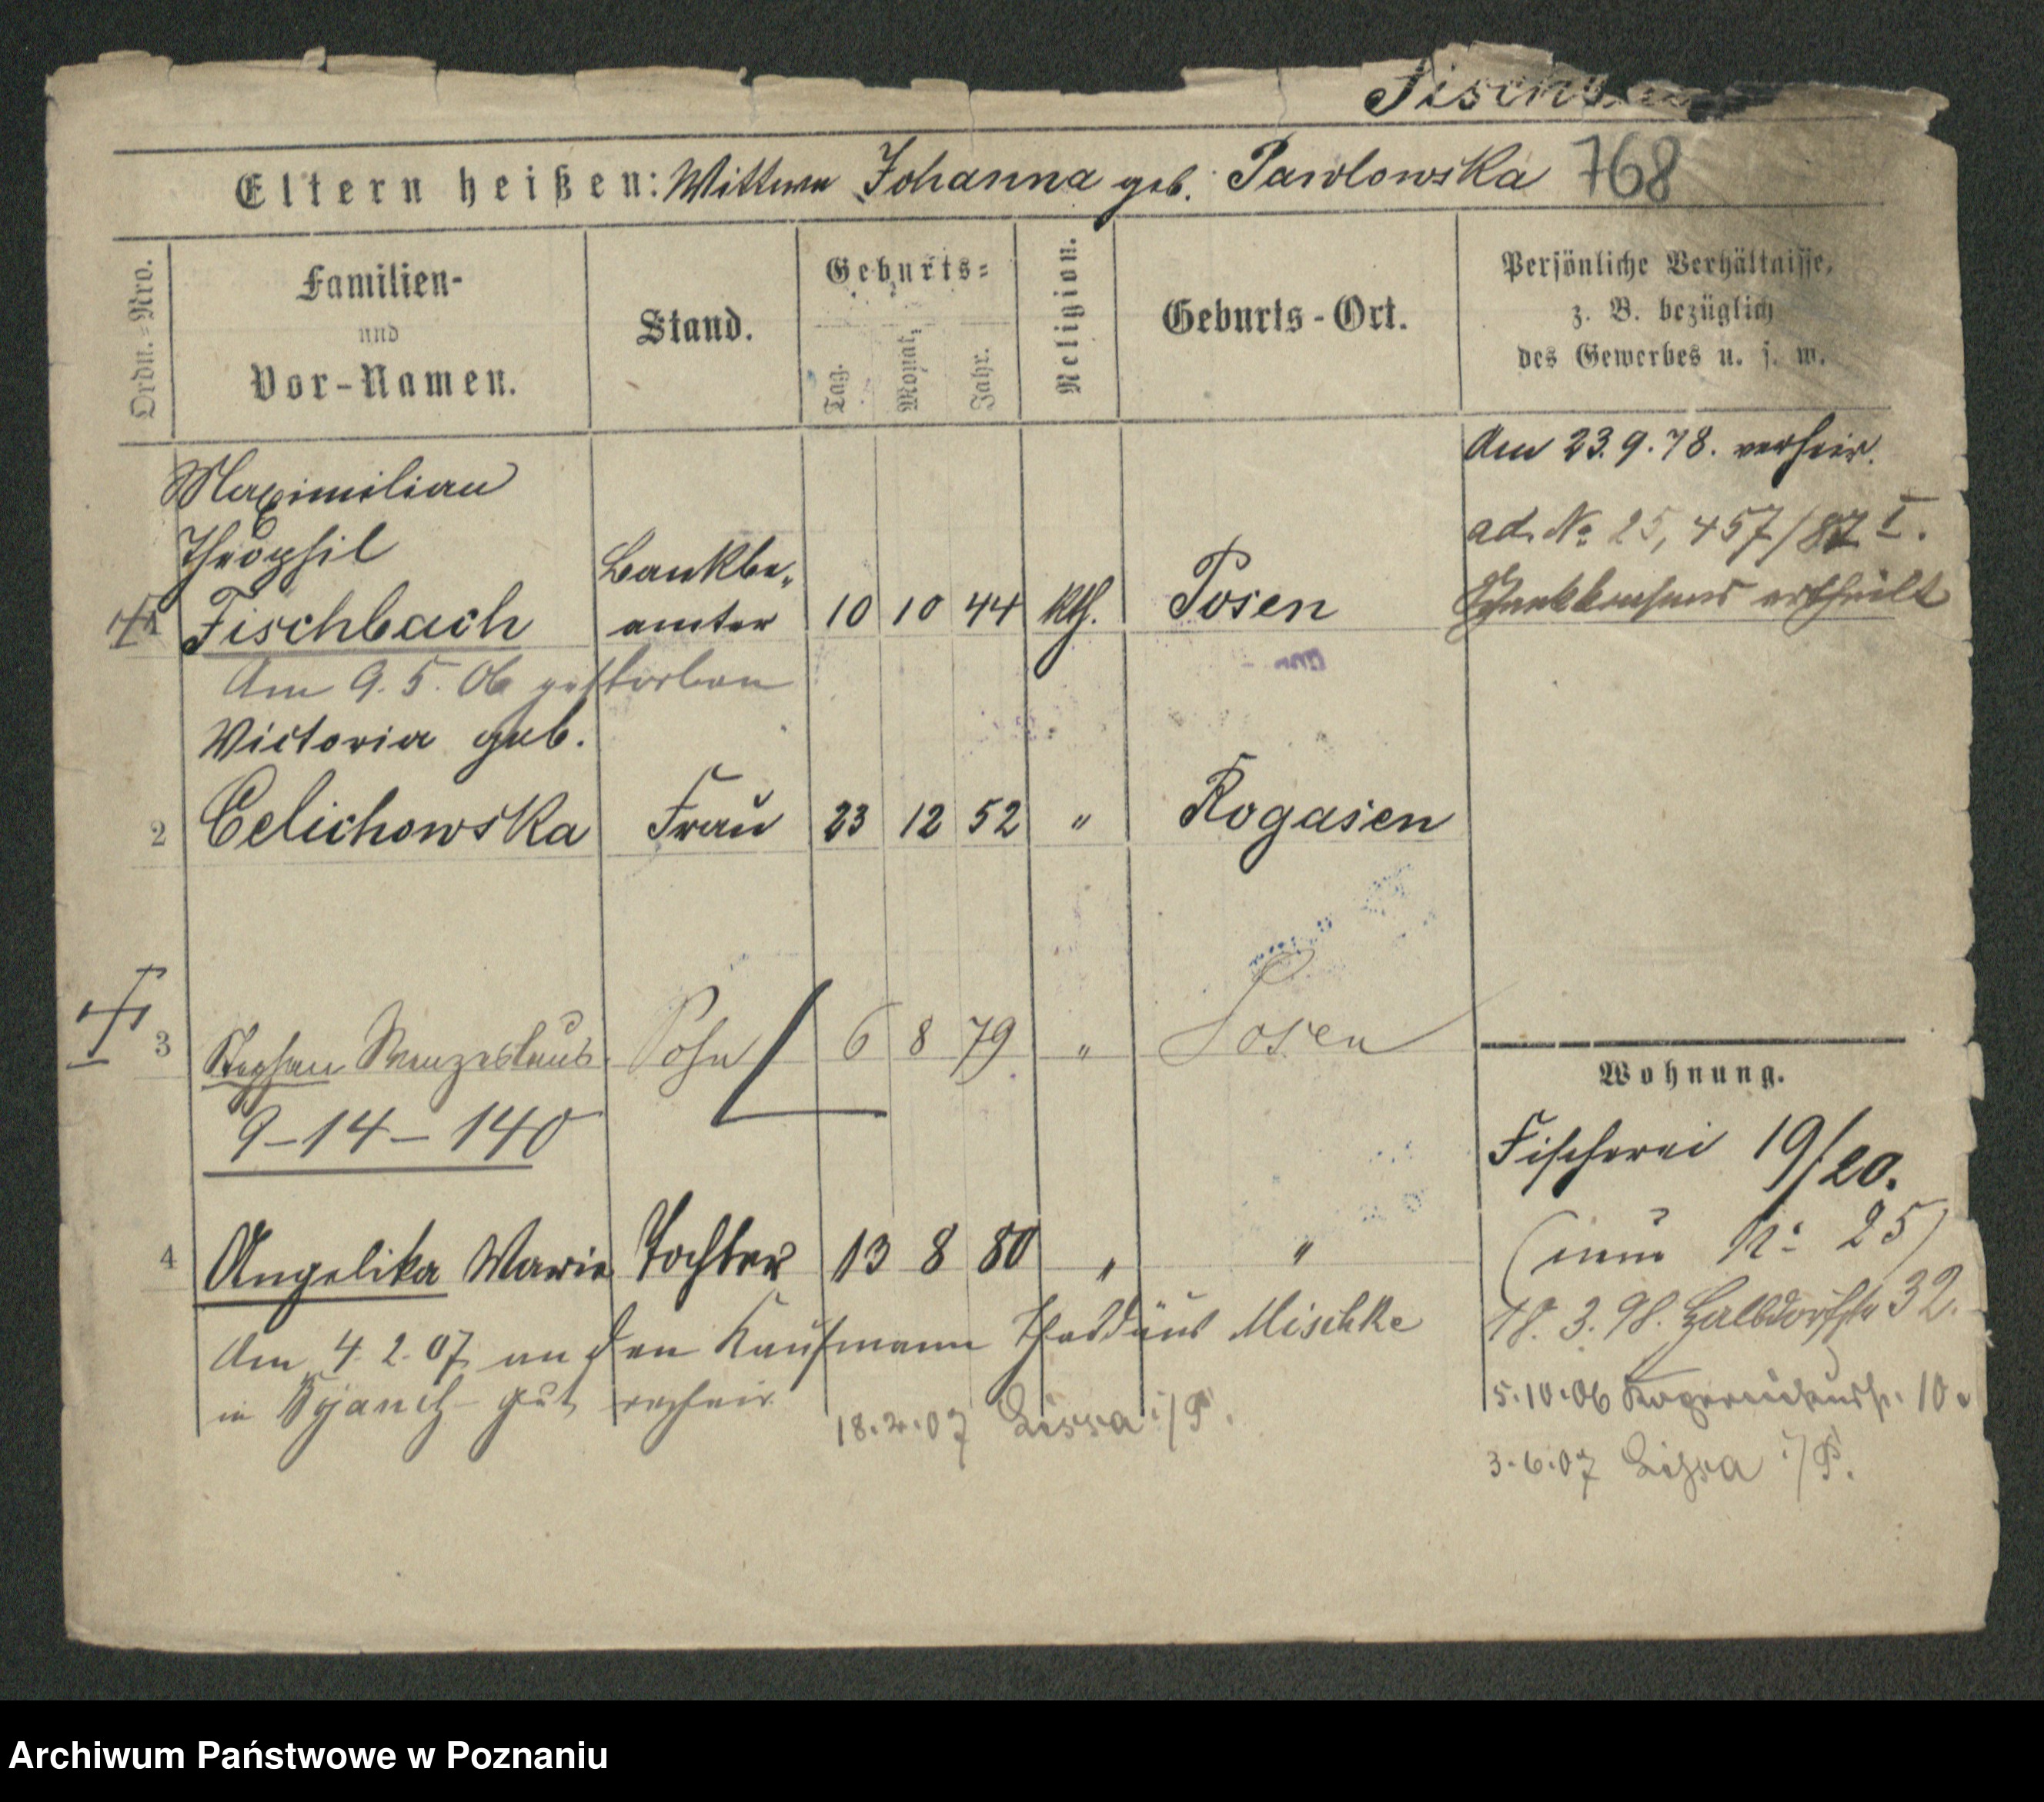 768
Eltern heißen: Wittwe Johanna geb. Pawlowska
Ordn.=Nro.
Familien-
und
Vor-Namen.
Stand.
Geburts=
Tag.
Monat.
Jahr.
Religion.
Geburts-Ort.
Persönliche Verhältnisse,
z. B. bezüglich
des Gewerbes u. s. w.
Maximilian
Theophil
1 Fischbach
Bankbe-
amter
10 10 44 kth. Posen
Am 23.9.78. verheir.
ad. No 25,457/87 I.
ertheilt
Am 9.5.06 gestorben
Victoria geb.
2 Celichowska Frau 23 12 52 " Rogasen
3 Stephan Wenzeslaus Sohn 6 8 79 " Posen
9-14-140
4 Angelika Marie Tochter 13 8 80 " "
Am 4.2.07 an den Kaufmann Thaddäus Mischke
in gut verheir.
18.2.07 Lissa i/P.
Wohnung.
Fischerei 19/20.
(nun No 25)
18.3.98. Halbdorfstr 32.
5.10.06 10
3.6.07 Lissa i/P.
Archiwum Państwowe w Poznaniu